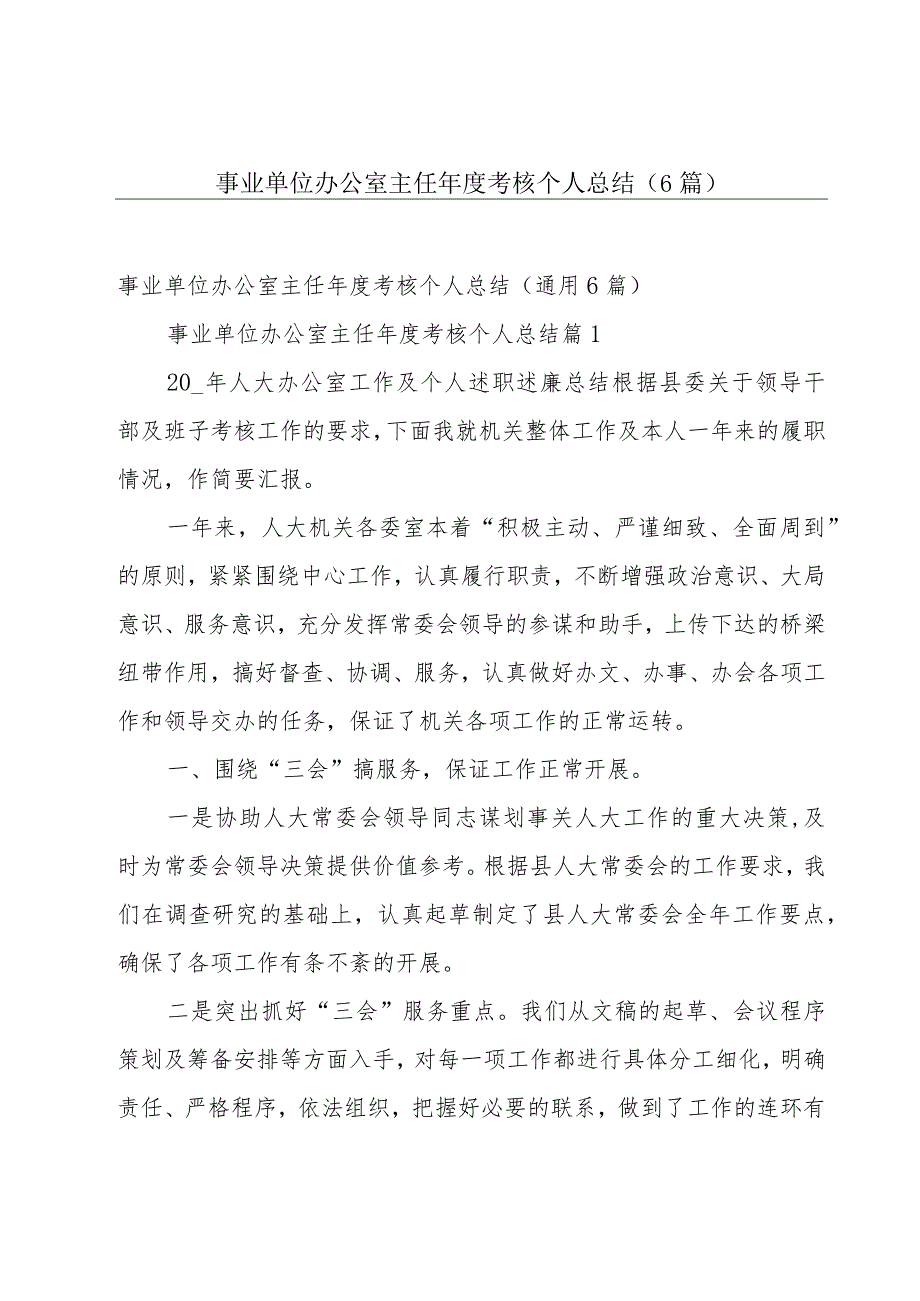 事业单位办公室主任年度考核个人总结（6 篇）
事业单位办公室主任年度考核个人总结（通用 6 篇）
事业单位办公室主任年度考核个人总结篇 1
20_年人大办公室工作及个人述职述廉总结根据县委关于领导干
部及班子考核工作的要求,下面我就机关整体工作及本人一年来的履职
情况，作简要汇报。
一年来，人大机关各委室本着“积极主动、严谨细致、全面周到”
的原则，紧紧围绕中心工作，认真履行职责，不断增强政治意识、大局
意识、服务意识，充分发挥常委会领导的参谋和助手，上传下达的桥梁
纽带作用，搞好督查、协调、服务，认真做好办文、办事、办会各项工
作和领导交办的任务，保证了机关各项工作的正常运转。
一、围绕“三会”搞服务，保证工作正常开展。
一是协助人大常委会领导同志谋划事关人大工作的重大决策,及
时为常委会领导决策提供价值参考。根据县人大常委会的工作要求，我
们在调查研究的基础上，认真起草制定了县人大常委会全年工作要点，
确保了各项工作有条不紊的开展。
二是突出抓好“三会”服务重点。我们从文稿的起草、会议程序
策划及筹备安排等方面入手，对每一项工作都进行具体分工细化，明确
责任、严格程序，依法组织，把握好必要的联系，做到了工作的连环有